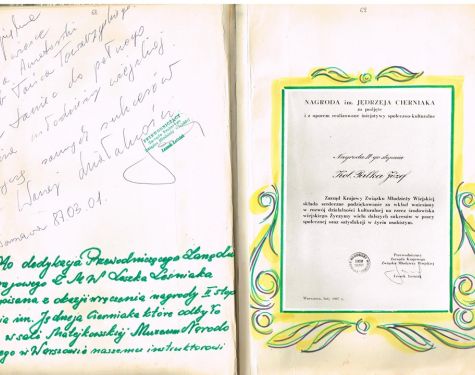 68
Amatorski
Tańca Towarzyskiego
za tańce do pełnego
młodzieży wiejskiej
samych sukcesów
Waszej działalności
PRZEWODNICZĄCY
Leszek Leśniak
87.03.01.
To dedykacja Przewodniczącego Zarządu
Krajowego ZMW Leszka Leśniaka
wpisana z okazji wręczenia nagrody II stop
nia im. Jędrzeja Cierniaka które odbyło
w sali Matejkowskiej Muzeum Narodo
wego w Warszawie naszemu instruktorowi
69
NAGRODA im. JĘDRZEJA CIERNIAKA
za podjęte
i z uporem realizowane inicjatywy społeczno-kulturalne
Nagroda II-go stopnia
Kol. Józef
Zarząd Krajowy Związku Młodzieży Wiejskiej
składa serdeczne podziękowanie za wkład wniesiony
w rozwój działalności kulturalnej na rzecz środowiska
wiejskiego. Życzymy wielu dalszych sukcesów w pracy
społecznej oraz satysfakcji w życiu osobistym.
Przewodniczący
Zarządu Krajowego
Związku Młodzieży Wiejskiej
Leszek Leśniak
Warszawa, luty 1987 r.